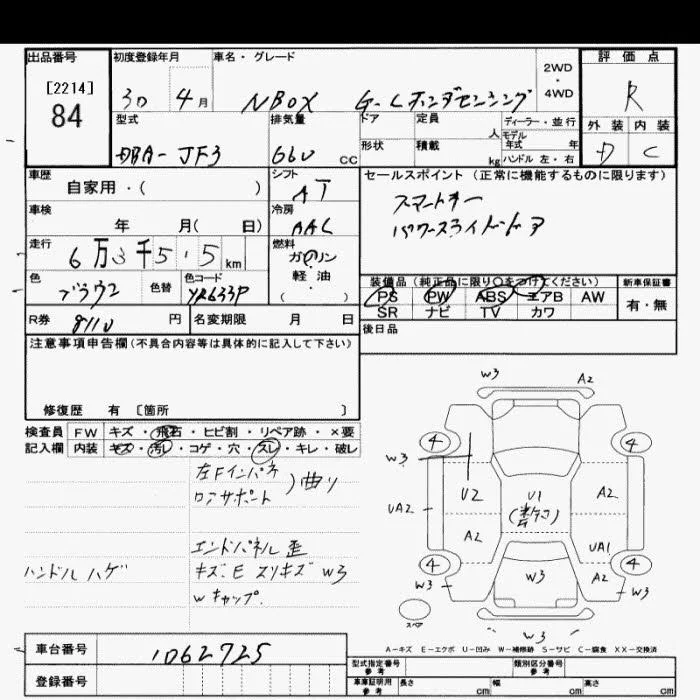 出品番号 初度登録年月 車名・グレード 評価点
[2214]
84
30 4月 NBOX G-Lホンダセンシング 2WD・4WD R
型式 排気量 ドア 定員 人 ディーラー・並行 外装 内装
DBA-JF3 660 CC 形状 積載 kg モデル年式 年 ハンドル 左・右 D C
車歴 自家用・( ) シフト AT セールスポイント (正常に機能するものに限ります)
スマートキー
車検 年 月( 日) 冷房 AAC パワースライドドア
走行 6万3千5.5 km 燃料 ガソリン・軽油・( )
色 ブラウン 色替 色コード YR633P
装備品 (純正品に限り○をつけてください) 新車保証書
PS PW ABS エアB AW 有・無
SR ナビ TV カワ
R券 8110 円 名変期限 月 日 後日品
注意事項申告欄(不具合内容等は具体的に記入して下さい)
修復歴 有 [箇所 ]
検査員 FW キズ・飛石・ヒビ割・リペア跡・×要
記入欄 内装 キズ・汚レ・コゲ・穴・スレ・キレ・破レ
左Fインパネ
ロアサポート )曲り
エンドパネル 歪
ハンドル ハゲ キズ.E スリキズ W3
Wキャップ.
W3 A2
4 4
W3
U2 U1 A2
UA2
A2 UA1
4 4
W3 W3 A2 W3
スペア
W3
A-キズ E-エクボ U-凹み W-補修跡 S-サビ C-腐食 XX-交換済
車台番号 1062725
登録番号
型式指定番号 参考 類別区分番号 参考
車庫証明用 参考 長さ cm 幅 cm 高さ cm